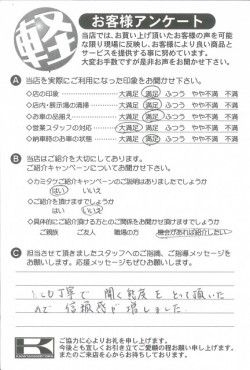 軽
お客様アンケート
当店では、お買い上げ頂いたお客様の声を可能
な限り現場に反映し、お客様により良い商品と
サービスを提供する事に努めています。
大変お手数ですが是非お声をお聞かせ下さい。
A 当店を実際にご利用になった印象をお聞かせ下さい。
◇店の印象 大満足 満足 ふつう やや不満 不満
◇店内・展示場の清掃 大満足 満足 ふつう やや不満 不満
◇お車の品揃え 大満足 満足 ふつう やや不満 不満
◇営業スタッフの対応 大満足 満足 ふつう やや不満 不満
◇納車時のお車の状態 大満足 満足 ふつう やや不満 不満
B 当店はご紹介を大切にしております。
ご紹介キャンペーンについてお聞かせ下さい。
◇カミタケご紹介キャンペーンのご説明はありましたでしょうか
はい いいえ
◇ご紹介を頂けますでしょうか
はい いいえ
◇具体的にご紹介頂ける方とのご関係をお聞かせ頂けますでしょうか
ご親族 ご友人 職場の方 機会があれば紹介したい
C 担当させて頂きましたスタッフへのご指摘、ご指導メッセージを
お願いします。応援メッセージもぜひお願いします。
丁寧で 聞く態度を とって頂いた
ので 信頼感が 増しました
K
ご協力に心よりお礼を申し上げます。
今後とも宜しくお引き立てご愛顧の程お願い申し上げます。
またのご来店を心からお待ちしております。